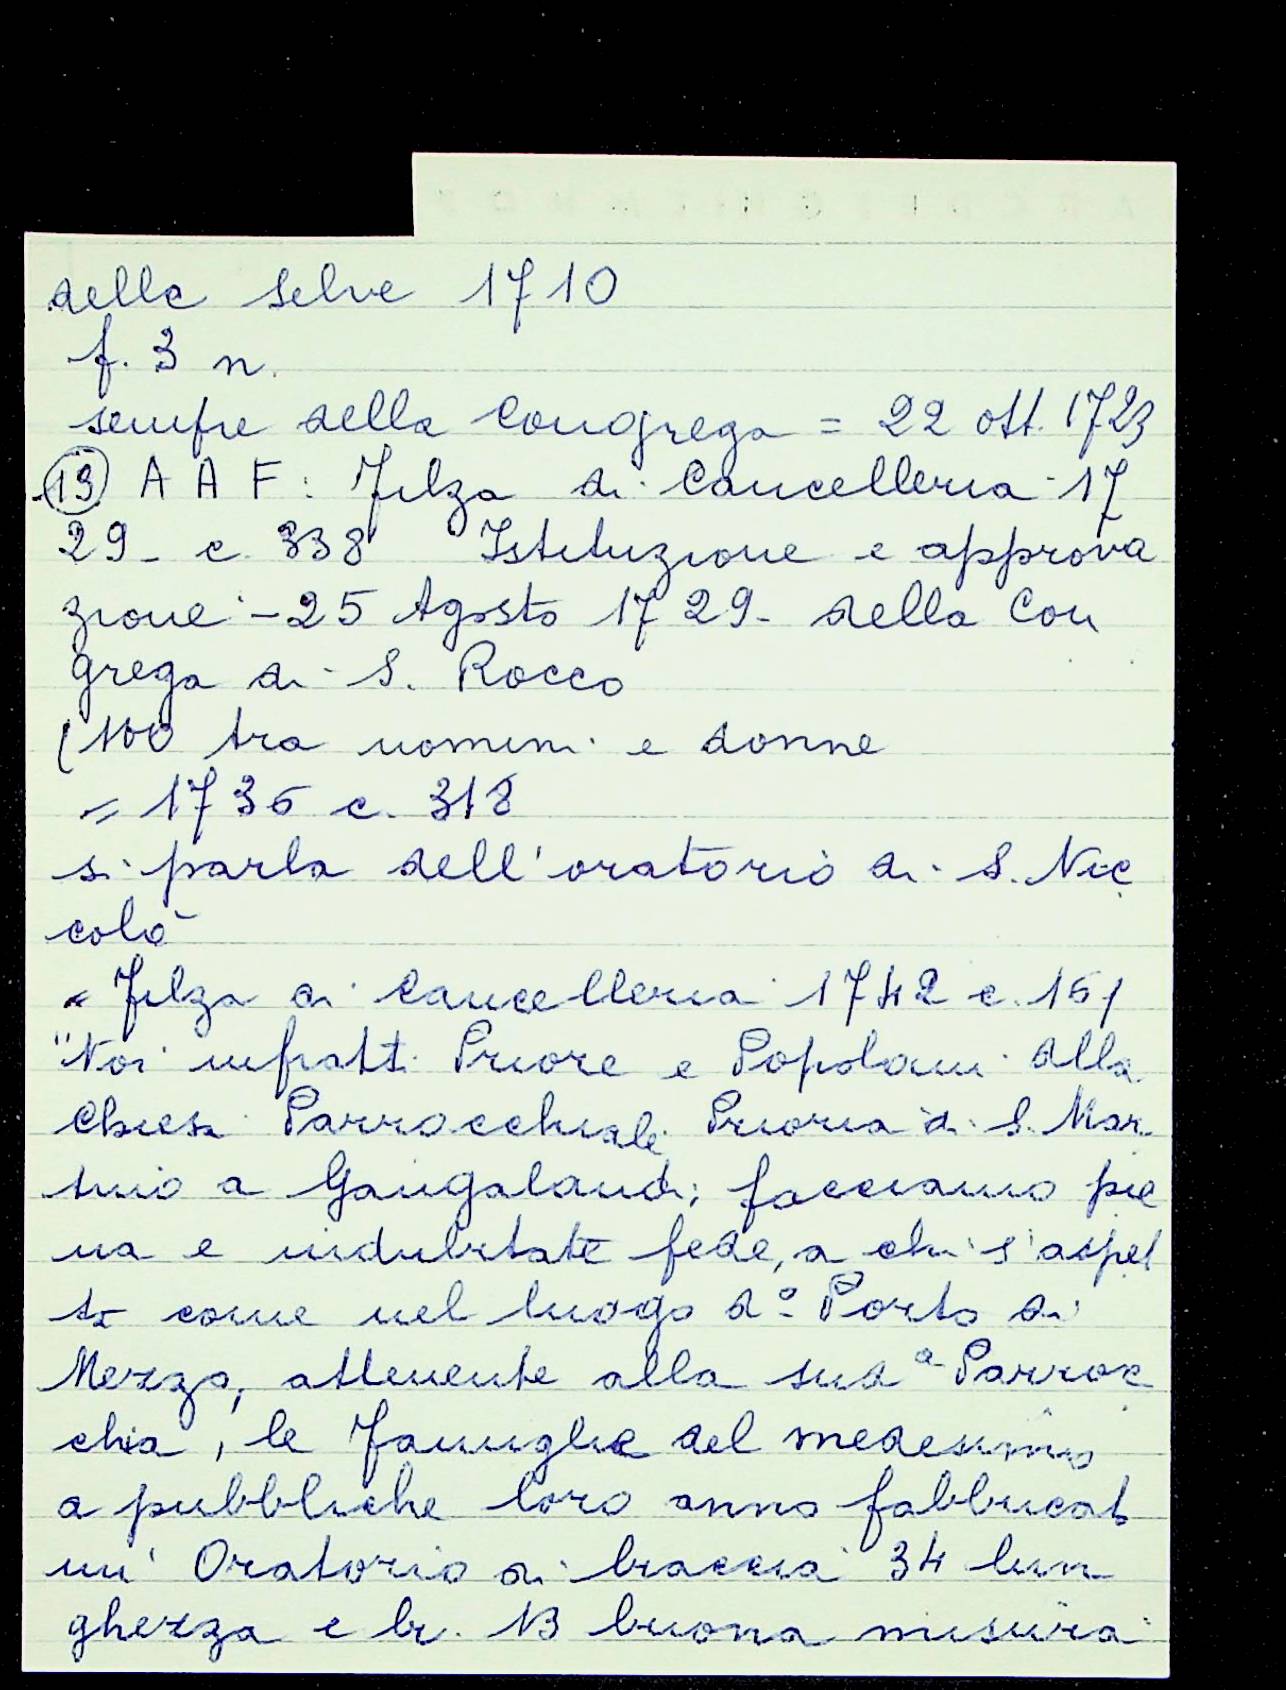 delle Selve 1710
f. 3 n.
sempre della Congrega = 22 ott. 1723
(19) A A F: Filza di Cancelleria 17
29- c 338 Istituzione e approva
zione - 25 Agosto 1729- della Con
grega di S. Rocco
(100 tra uomini e donne
= 1736 c. 318
si parla dell'oratorio di S. Nic
colò
" Filza di Cancelleria 1742 c. 161
"Noi infratti Priore e Popolani della
Chiesa Parrocchiale Prioria di S. Mar
tino a Gangalandi; facciamo pie
na e indubitate fede, a chi s'aspet
ta come nel luogo d.º Porto di
Mezzo, attenente alla sud.ª Parroc
chia, le Famiglie del medesimo
a pubbliche loro anno fabbricat
un' Oratorio di braccia 34 lun
ghezza e br. 13 buona misura